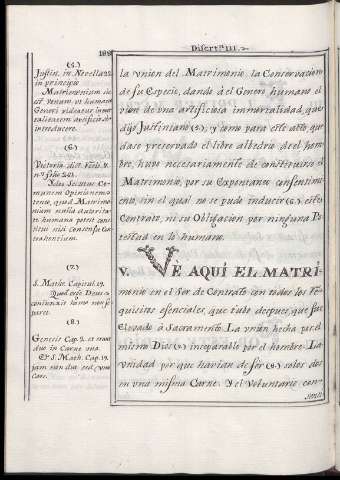 188
Disert.n III.
(5.)
Justin. in Novella 22.
in principio
Matrimonium id
est venam. ut humano
Generi videatur immor
talitatem artificiose
introducere.
(6.)
n.o folio 261.
Nos secutus Co-
munem Opinionem
teneo, quod Matrimo
nium nulla autorita
te humana potest cons
titui nisi consensu Con
trahentium.
(7.)
S. Math. Capitul. 19.
Quod ergo Deus
coniunxit homo non se
paret.
(8.)
Genesis Cap. 2. et erunt
duo in Carne una.
Et S. Math. Cap. 19.
jam non duo sed, una
Caro.
la vnion del Matrimonio la Conservacion
de su Especie, dando à el Genero humano el
vion de vna artificiosa immortalidad, que
dijo Justiniano (5.), y como para este acto que
dase preservado el libre albedrio de el hom
bre, huvo necesariamente de constituirse el
Matrimonio, por su Expontaneo consentimi
ento, sin el qual no se pudo inducir (6.) este
Contrato, ni su Obligacion por ninguna Po
testad en lo humano.
V. VÈ AQUÍ EL MATRI-
monio en el Ser de Contrato con todos los Re
quisitos esenciales, que tubo despues, que fue
Elevado à Sacramento. La vnion hecha por el
mismo Dios (7.) inseparable por el hombre. La
vnidad por que havian de ser (8.) solos dos
en vna misma Carne. Y el Voluntario con-